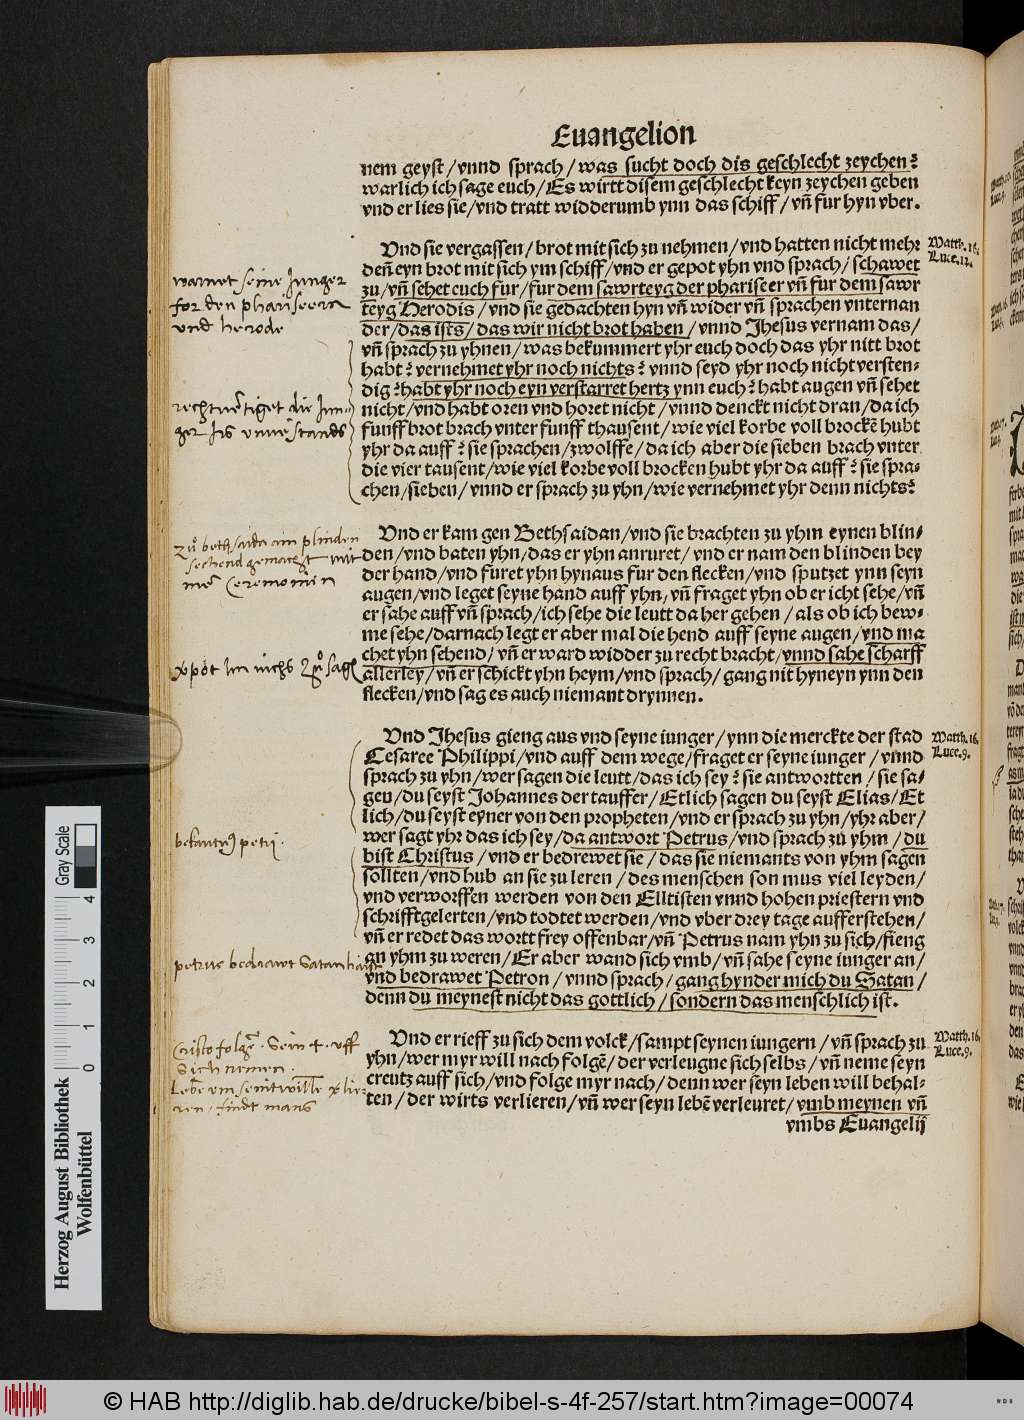 Euangelion
nem geyst / vnnd sprach / was sucht doch dis geschlecht zeychen?
warlich ich sage euch / Es wirtt disem geschlecht keyn zeychen geben
vnd er lies sie / vnd tratt widderumb ynn das schiff / vñ fur hyn vber.
Vnd sie vergassen / brot mit sich zu nehmen / vnd hatten nicht mehr
deñ eyn brot mit sich ym schiff / vnd er gepot yhn vnd sprach / schawet
zu / vñ sehet euch fur / fur dem sawrteyg der phariseer vñ fur dem sawr
teyg Herodis / vnd sie gedachten hyn vñ wider vñ sprachen vnternan
der / das ists / das wir nicht brot haben / vnnd Jhesus vernam das /
vñ sprach zu yhnen / was bekummert yhr euch doch das yhr nitt brot
habt? vernehmet yhr noch nichts? vnnd seyd yhr noch nicht versten-
dig? habt yhr noch eyn verstarret hertz ynn euch? habt augen vñ sehet
nicht / vnd habt oren vnd horet nicht / vnnd denckt nicht dran / da ich
funff brot brach vnter funff thausent / wie viel korbe voll brockē hubt
yhr da auff? sie sprachen / zwolffe / da ich aber die sieben brach vnter
die vier tausent / wie viel korbe voll brocken hubt yhr da auff? sie spra-
chen / sieben / vnnd er sprach zu yhn / wie vernehmet yhr denn nichts?
Matth. 16.
Luce. 12.
warnet seine Junger
for den phariseern
vnd herode
Vnd er kam gen Bethsaidan / vnd sie brachten zu yhm eynen blin-
den / vnd baten yhn / das er yhn anruret / vnd er nam den blinden bey
der hand / vnd furet yhn hynaus fur den flecken / vnd sputzet ynn seyn
augen / vnd leget seyne hand auff yhn / vñ fraget yhn ob er icht sehe / vñ
er sahe auff vñ sprach / ich sehe die leutt da her gehen / als ob ich bew-
me sehe / darnach legt er aber mal die hend auff seyne augen / vnd ma
chet yhn sehend / vñ er ward widder zu recht bracht / vnnd sahe scharff
allerley / vñ er schickt yhn heym / vnd sprach / gang nit hyneyn ynn den
flecken / vnd sag es auch niemant drynnen.
Vnd Jhesus gieng aus vnd seyne iunger / ynn die merckte der stad
Cesaree Philippi / vnd auff dem wege / fraget er seyne iunger / vnnd
sprach zu yhn / wer sagen die leutt / das ich sey? sie antwortten / sie sa-
gen / du seyst Johannes der tauffer / Etlich sagen du seyst Elias / Et
lich / du seyst eyner von den propheten / vnd er sprach zu yhn / yhr aber /
wer sagt yhr das ich sey / da antwort Petrus / vnd sprach zu yhm / du
bist Christus / vnd er bedrewet sie / das sie niemants von yhm sagen
sollten / vnd hub an sie zu leren / des menschen son mus viel leyden /
vnd verworffen werden von den Elltisten vnnd hohen priestern vnd
schrifftgelerten / vnd todtet werden / vnd vber drey tage aufferstehen /
vñ er redet das wortt frey offenbar / vñ Petrus nam yhn zu sich / fieng
an yhm zu weren / Er aber wand sich vmb / vñ sahe seyne iunger an /
vnd bedrawet Petron / vnnd sprach / gang hynder mich du Satan /
denn du meynest nicht das gottlich / sondern das menschlich ist.
Matth. 16.
Luce. 9.
Vnd er rieff zu sich dem volck / sampt seynen iungern / vñ sprach zu
yhn / wer myr will nach folgē / der verleugne sich selbs / vñ neme seyn
creutz auff sich / vnd folge myr nach / denn wer seyn leben will behal-
ten / der wirts verlieren / vñ wer seyn lebē verleuret / vmb meynen vñ
vmbs Euangelij
Matth. 16.
Luce. 9.
Herzog August Bibliothek
Wolfenbüttel
Gray Scale
0 1 2 3 4
© HAB http://diglib.hab.de/drucke/bibel-s-4f-257/start.htm?image=00074